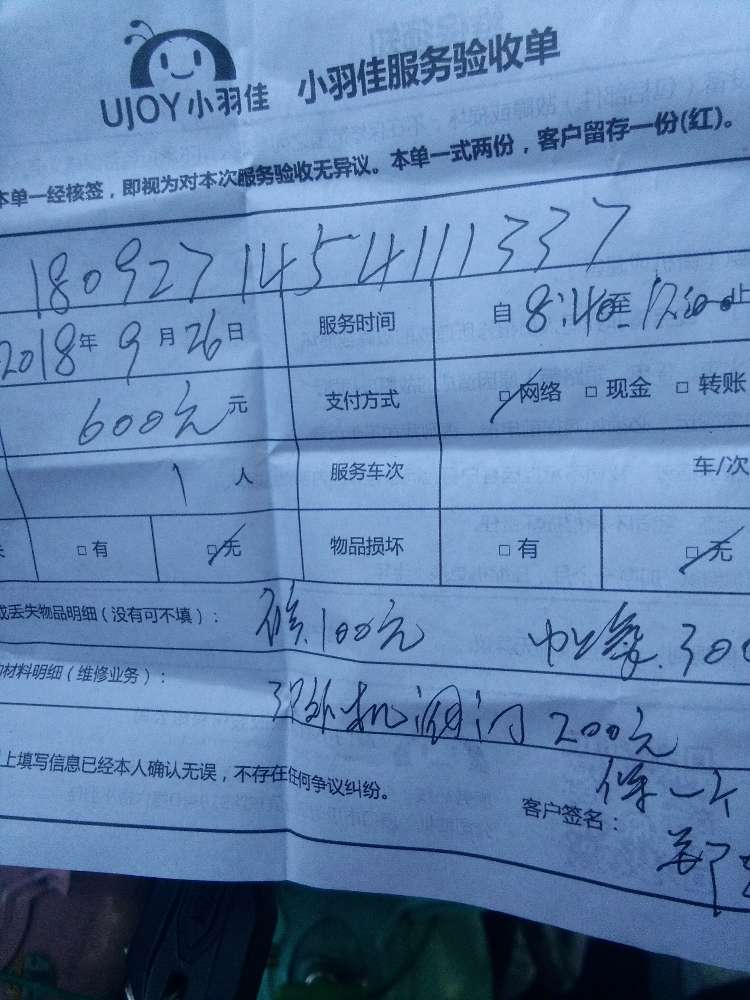 UJOY小羽佳 小羽佳服务验收单
本单一经核签，即视为对本次服务验收无异议。本单一式两份，客户留存一份(红)。
180927145411337
2018年9月26日 服务时间 自8:40至 止
600元元 支付方式 □网络 □现金 □转账
1人 服务车次 车/次
□有 □无 物品损坏 □有 □无
或丢失物品明细（没有可不填）： 100元 300
材料明细（维修业务）： 外机阀门200元
上填写信息已经本人确认无误，不存在任何争议纠纷。
保一个
客户签名： 郑